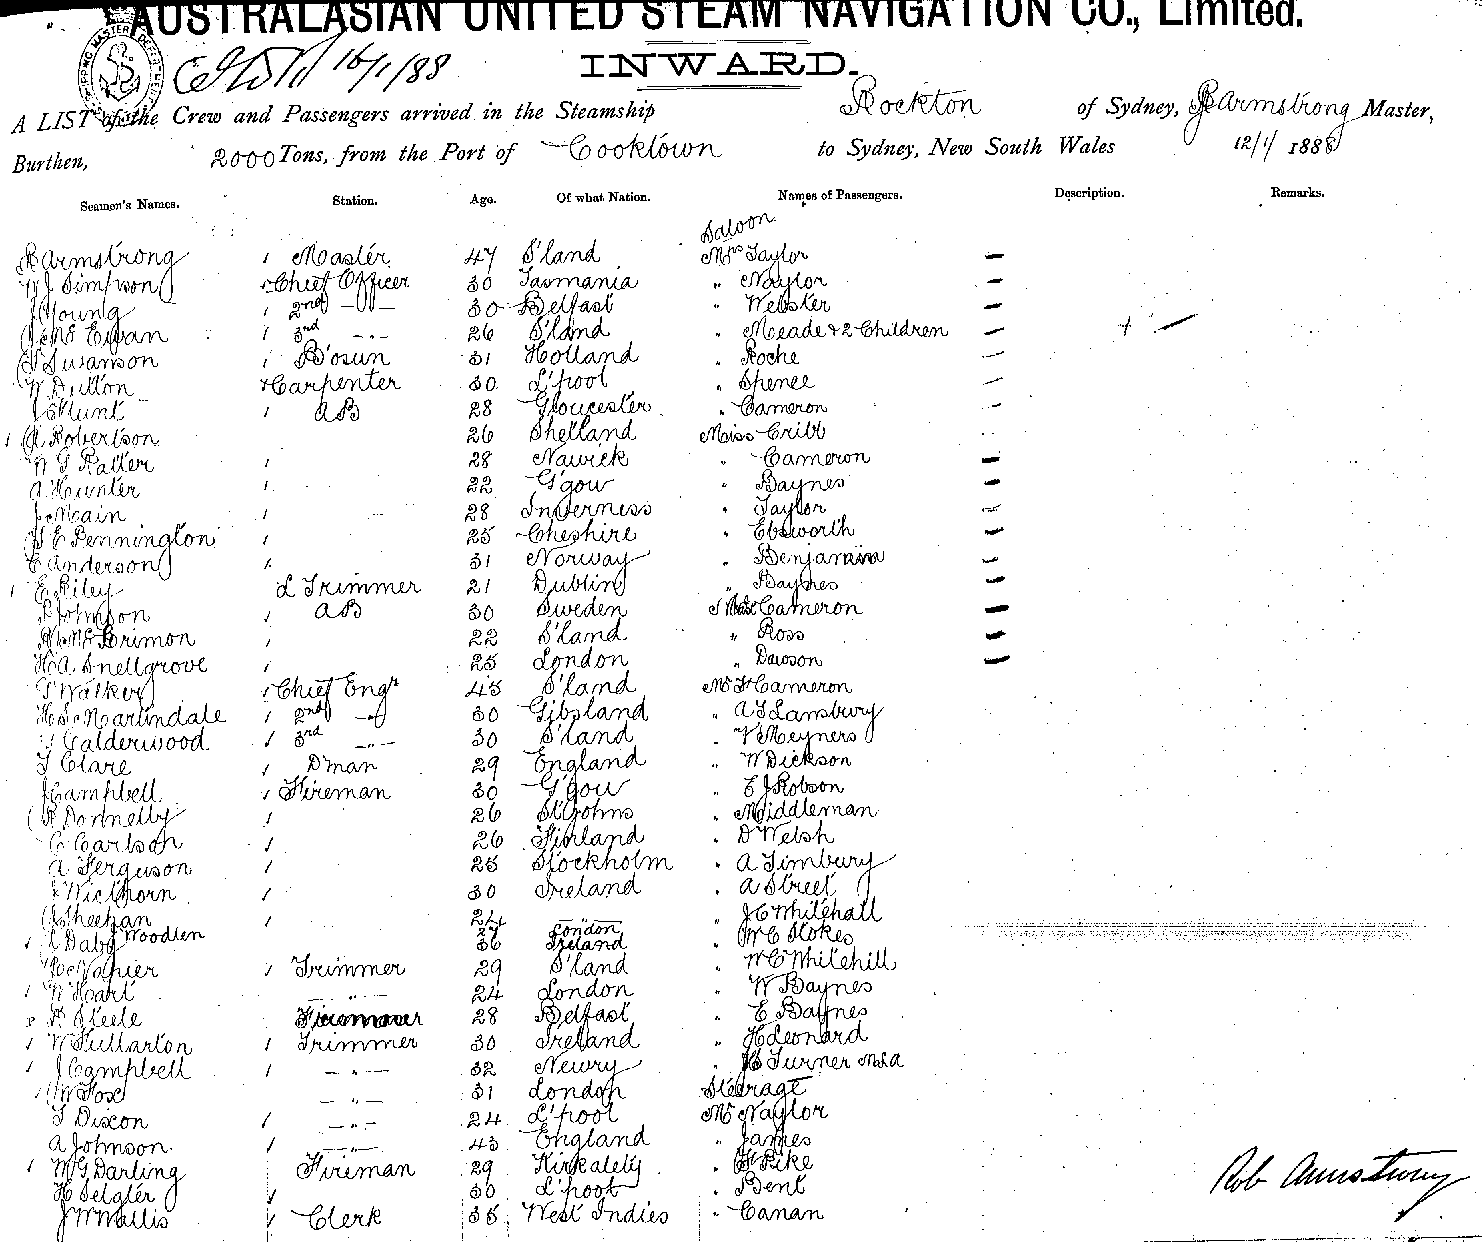 AUSTRALASIAN UNITED STEAM NAVIGATION CO., Limited.
16/1/88 INWARD.
A LIST of the Crew and Passengers arrived in the Steamship Rockton of Sydney, R Armstrong Master,
Burthen, 2000 Tons, from the Port of Cooktown to Sydney, New South Wales 12/1/1888
Seamen's Names. Station. Age. Of what Nation. Names of Passengers. Description. Remarks.
Saloon
R Armstrong Master 47 S'land Mrs Taylor —
W J Simpson Chief Officer 30 Tasmania " Naylor —
J Young 2nd —"— 30 Belfast " Webster —
J McEwan 3rd —"— 26 S'land " Meade & 2 Children — + —
Swanson B'osun 31 Holland " Roche —
W Dutton Carpenter 30 L'pool " Spence —
J Hunt AB 28 Gloucester " Cameron —
Robertson 26 Shetland Miss Cribb
W G Ratter 28 " Cameron —
A Hunter 22 G'gow " Baynes —
J McMain 28 Inverness " Taylor —
E Pennington 25 Cheshire " Ebsworth —
E Anderson 31 Norway " Benjamin —
E Riley L Trimmer 21 Dublin " Baynes —
Johnson AB 30 Sweden Cameron —
McCrimon 22 S'land " Ross —
H A Snellgrove 25 London " Dawson —
Walker Chief Engr 45 S'land Mr F Cameron
H S Martindale 2nd —"— 30 Gibsland " A G Lansbury
Calderwood 3rd —"— 30 S'land " V Meyners
T Clare D'man 29 England " W Dickson
J Campbell Fireman 30 G'gow " E J Robson
R Donnelly 26 St Johns " Middleman
C Carlson 26 Finland " D Welsh
A Ferguson 25 Stockholm " A Timbury
Wickhorn 30 Ireland " A Street
J Sheehan 24 " J C Whitehall
Woodlen 27 London
Daby 36 Ireland " W C Stokes
Napier Trimmer 29 S'land " W C Whitehill
W Hart —"— 24 London " W Baynes
R Steele 28 Belfast " E Baynes
W Fullarton Trimmer 30 Ireland " H Leonard
J Campbell —"— 32 Newry " Turner MLA
W Fox —"— 31 London Steerage
T Dixon —"— 24 L'pool Mr Naylor
A Johnson —"— 43 England " James
W G Darling Fireman 29 " Pike
H Selgler 30 L'pool " Bent
J W Wallis Clerk 35 West Indies " Canan
Rob Armstrong